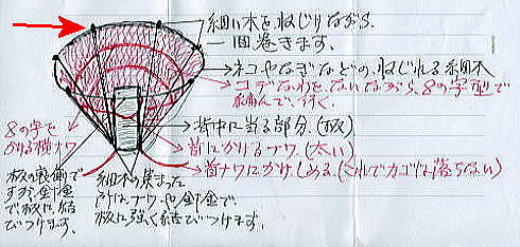 細い木を、ねじりながら、
一回巻きます。
ネコやなぎなどの、ねじれる細木
コデなわを、ないながら、8の字型で
編んで、行く。
背中に当る部分。(板)
首にかけるナワ(太い)
首ナワにかけ、しめる。(これでカゴは落ちない)
8の字を
かける横ナワ
板の裏側で
すが、針金
で板に結
びつけます。
細木の集まった
所は、ナワや針金で
板に強く結びつけます。